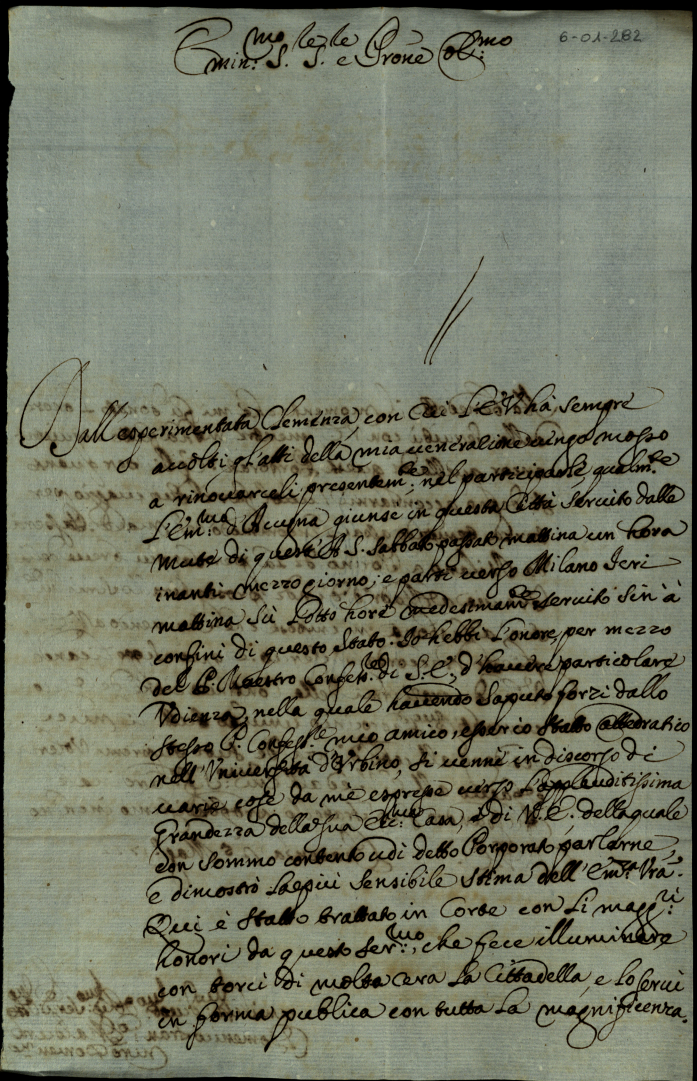 6-01-282
Emin:mo S.le S.le e Prone Ol:mo
Dall'esperimentata Clemenza, con cui l'E.V. hà sempre
accolti gl'atti della mia venerazione vengo mosso
a rinovarceli presentem:te nel participarle, qualm:te
l'Em:mo d'Acugna giunse in questa Città servito dalle
mute di quest'A. S. Sabbato passato mattina un hora
inanti mezzo giorno, e partì verso Milano Ieri
mattina sù l'otto hore medesimam:te servito sin'à
confini di questo Stato. Io hebbi l'onore, per mezzo
del P. Maestro Confess:re di S. E., d'havere particolare
Udienza, nella quale havendo saputo forzi dallo
stesso P. Confess:re mio amico, esser io stato Cattedratico
nell'Università d'Urbino, si venne in discorso di
varie cose da mè espresse verso l'applauditissima
Grandezza della sua Ecc:ma Casa, e di V. E. della quale
con sommo contento udì detto Porporato parlarne,
e dimostrò la più sensibile stima dell'Em:za Vra.
Qui è stato trattato in Corte con li magg:ri
honori da questo Ser:mo, che fece illuminare
con torci di molta cera la Cittadella, e lo servì
in forma publica con tutta la magnificenza.